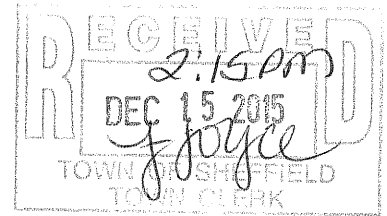 RECEIVED
2:15 PM
DEC 15 2015
J Joyce
TOWN OF SHEFFIELD
TOWN CLERK